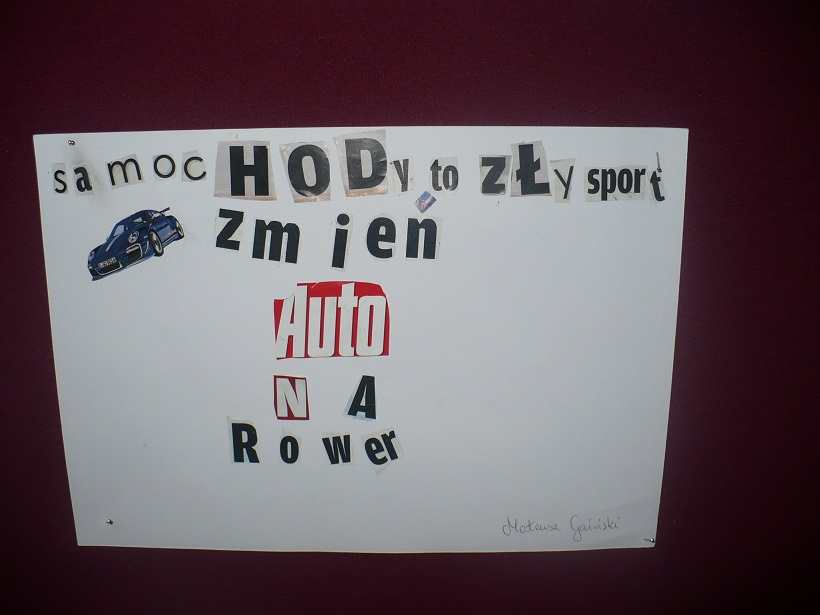 samocHODy to zŁy sport
zmień
Auto
NA
Rower
Mateusz